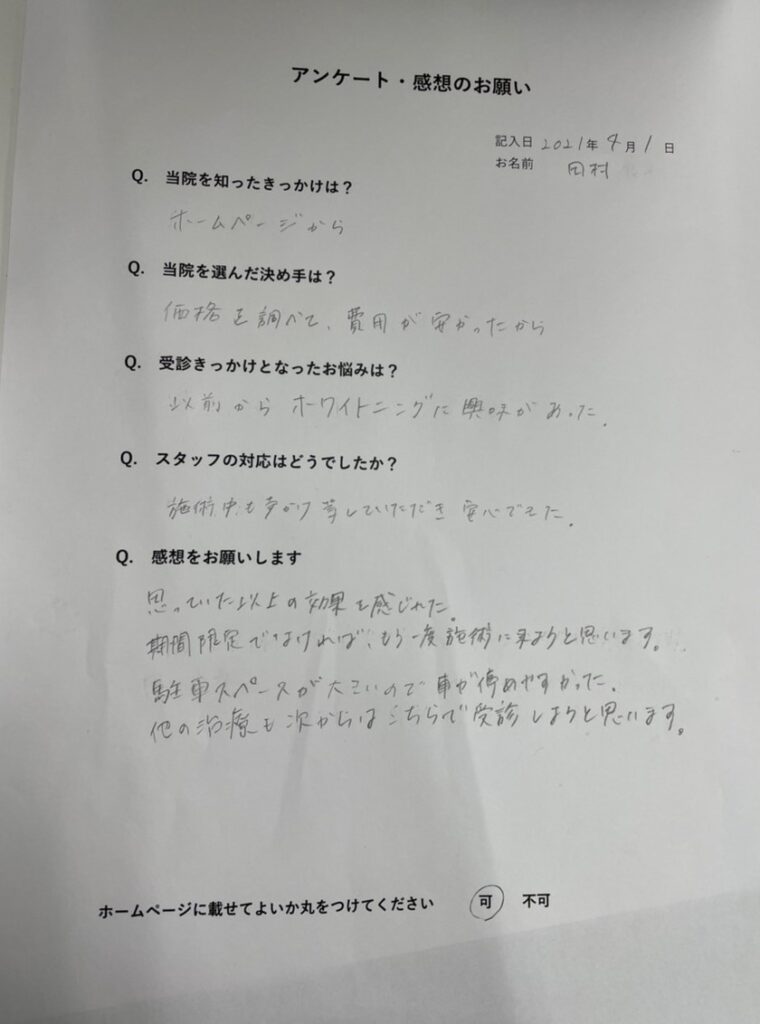 アンケート・感想のお願い
記入日 2021年 4月 1日
お名前 田村
Q. 当院を知ったきっかけは？
ホームページから
Q. 当院を選んだ決め手は？
価格を調べて、費用が安かったから
Q. 受診きっかけとなったお悩みは？
以前からホワイトニングに興味があった.
Q. スタッフの対応はどうでしたか？
施術中も声かけ等していただき安心できた.
Q. 感想をお願いします
思っていた以上の効果を感じれた.
期間限定でなければ、もう一度施術に来ようと思います。
駐車スペースが大きいので車が停めやすかった.
他の治療も次からはこちらで受診しようと思います。
ホームページに載せてよいか丸をつけてください 可 不可